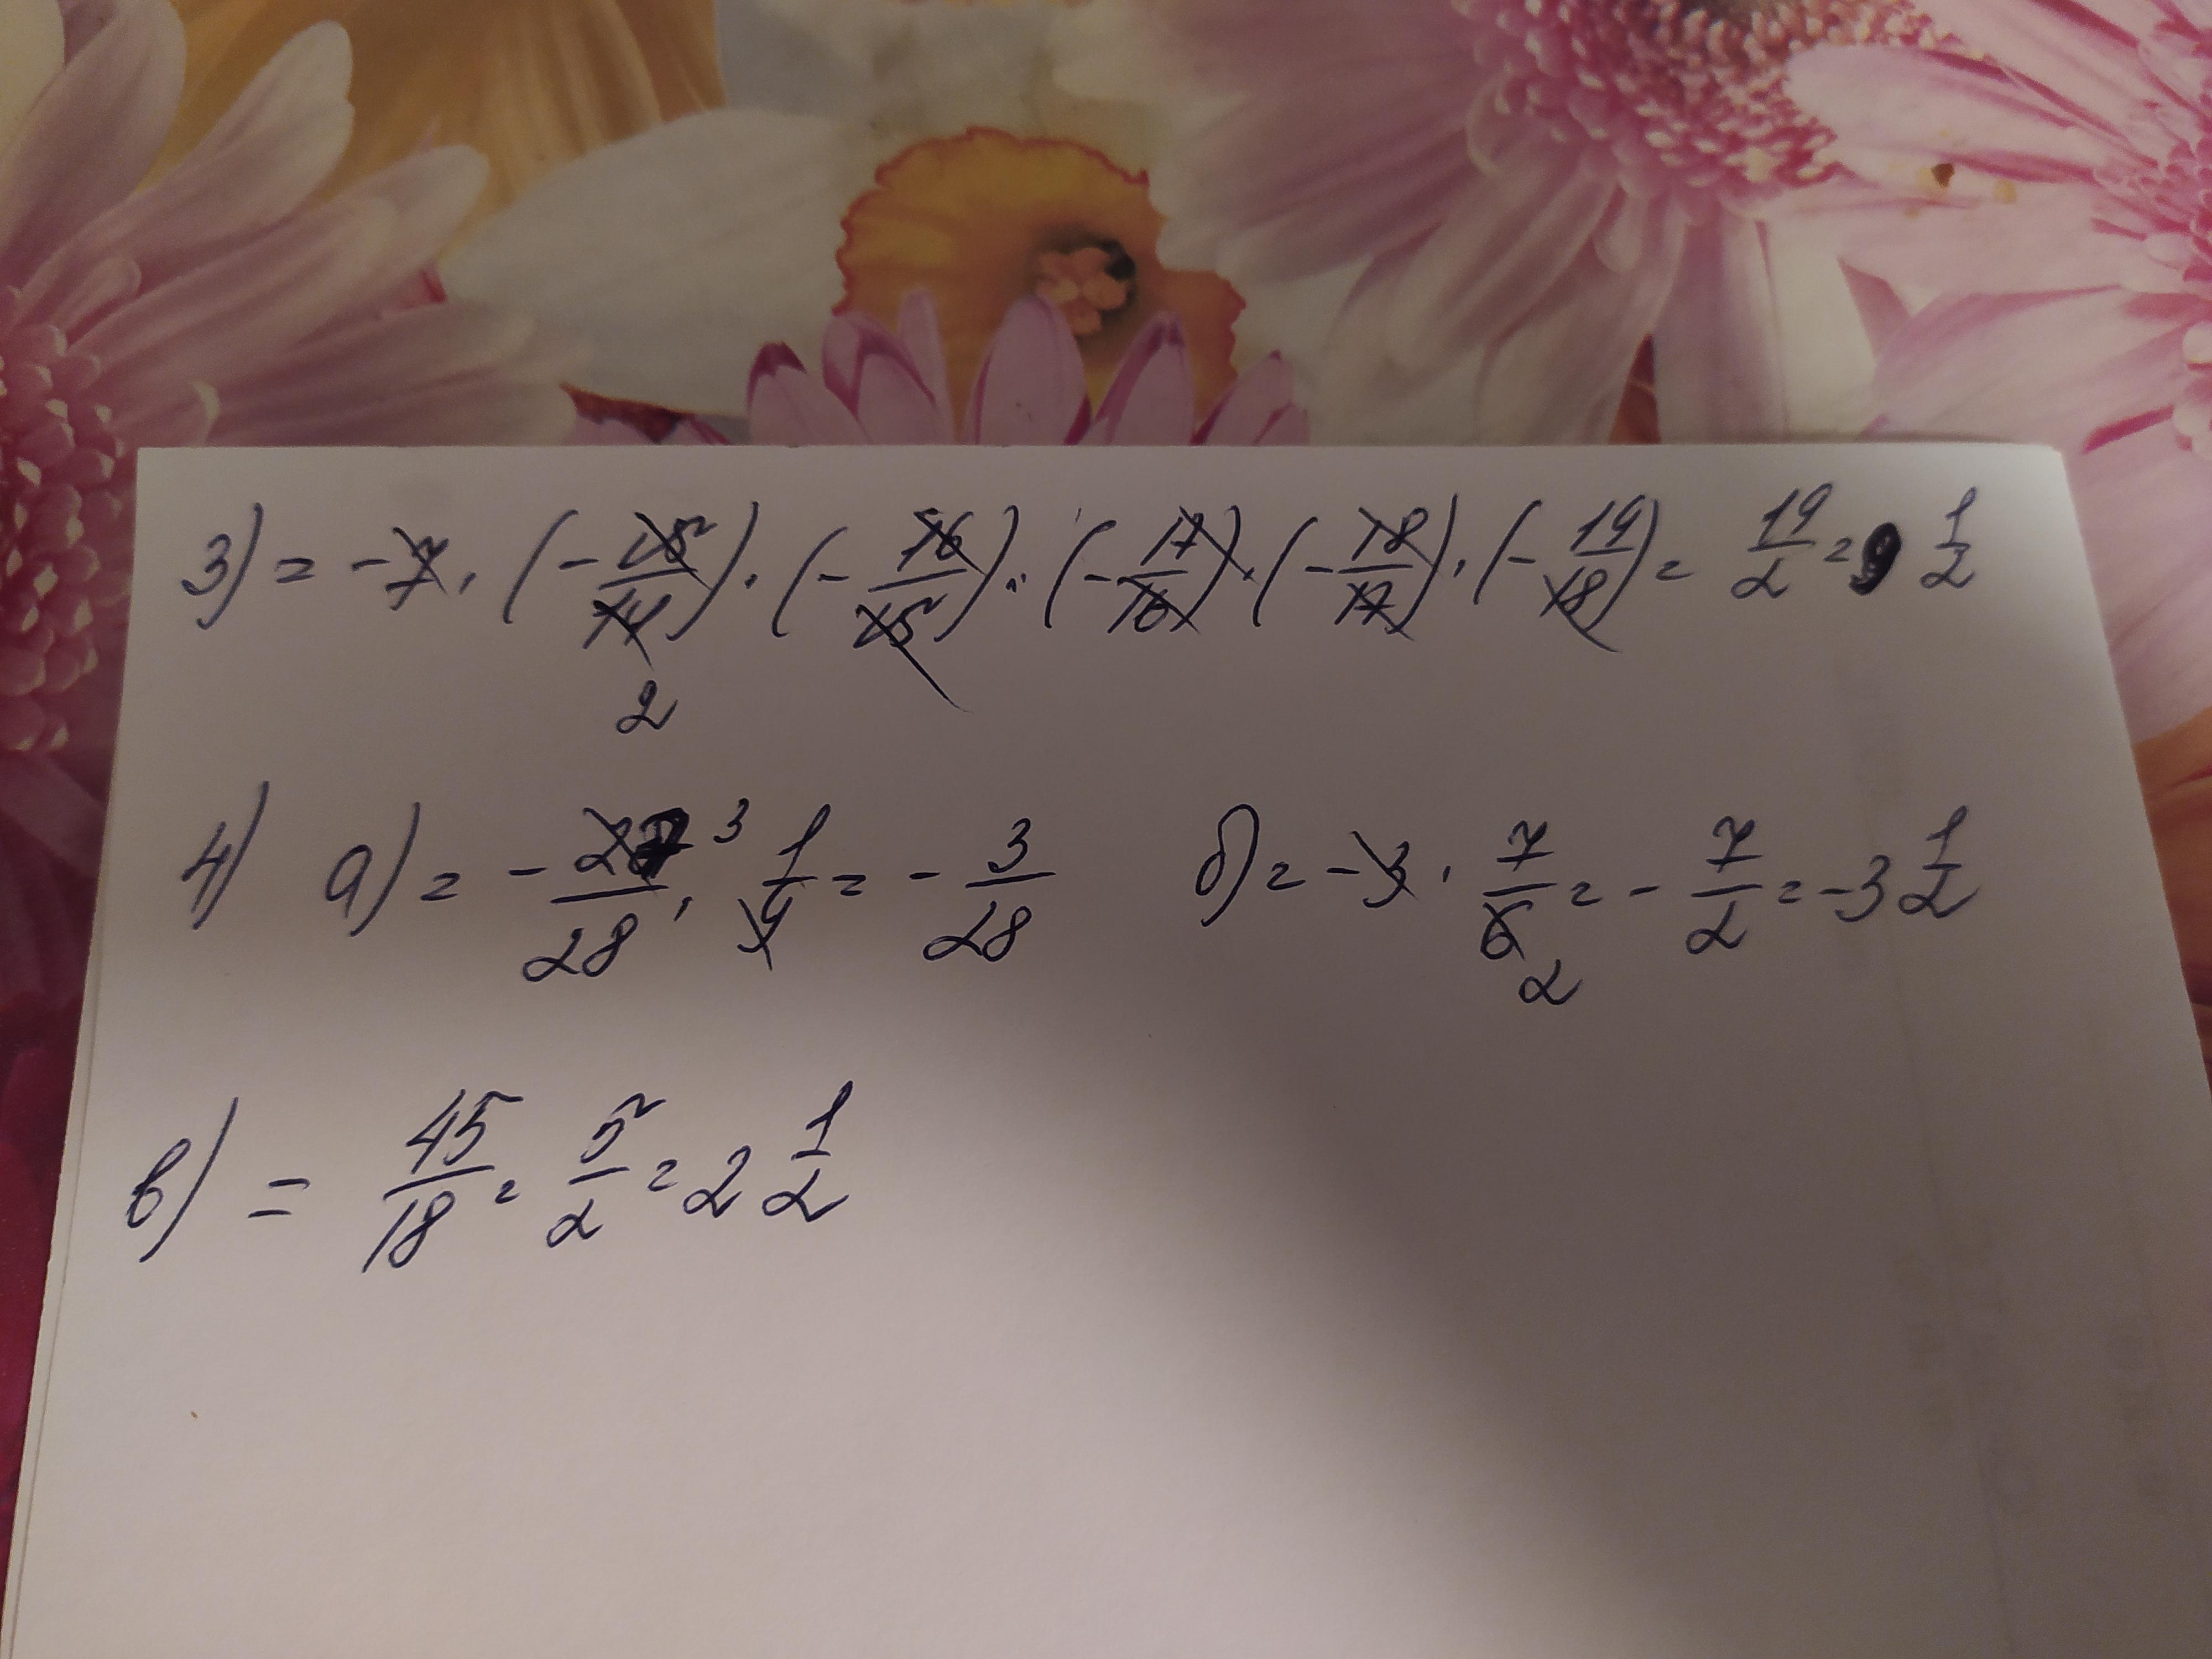 3) = -7 · (-15/14) · (-16/15) · (-17/16) · (-18/17) · (-19/18) = 19/2 = 9 1/2
2
4) а) = -27/28 3 · 1/9 = -3/28 б) = -3 · 7/6 = -7/2 = -3 1/2
2
в) = 45/18 = 5/2 = 2 1/2